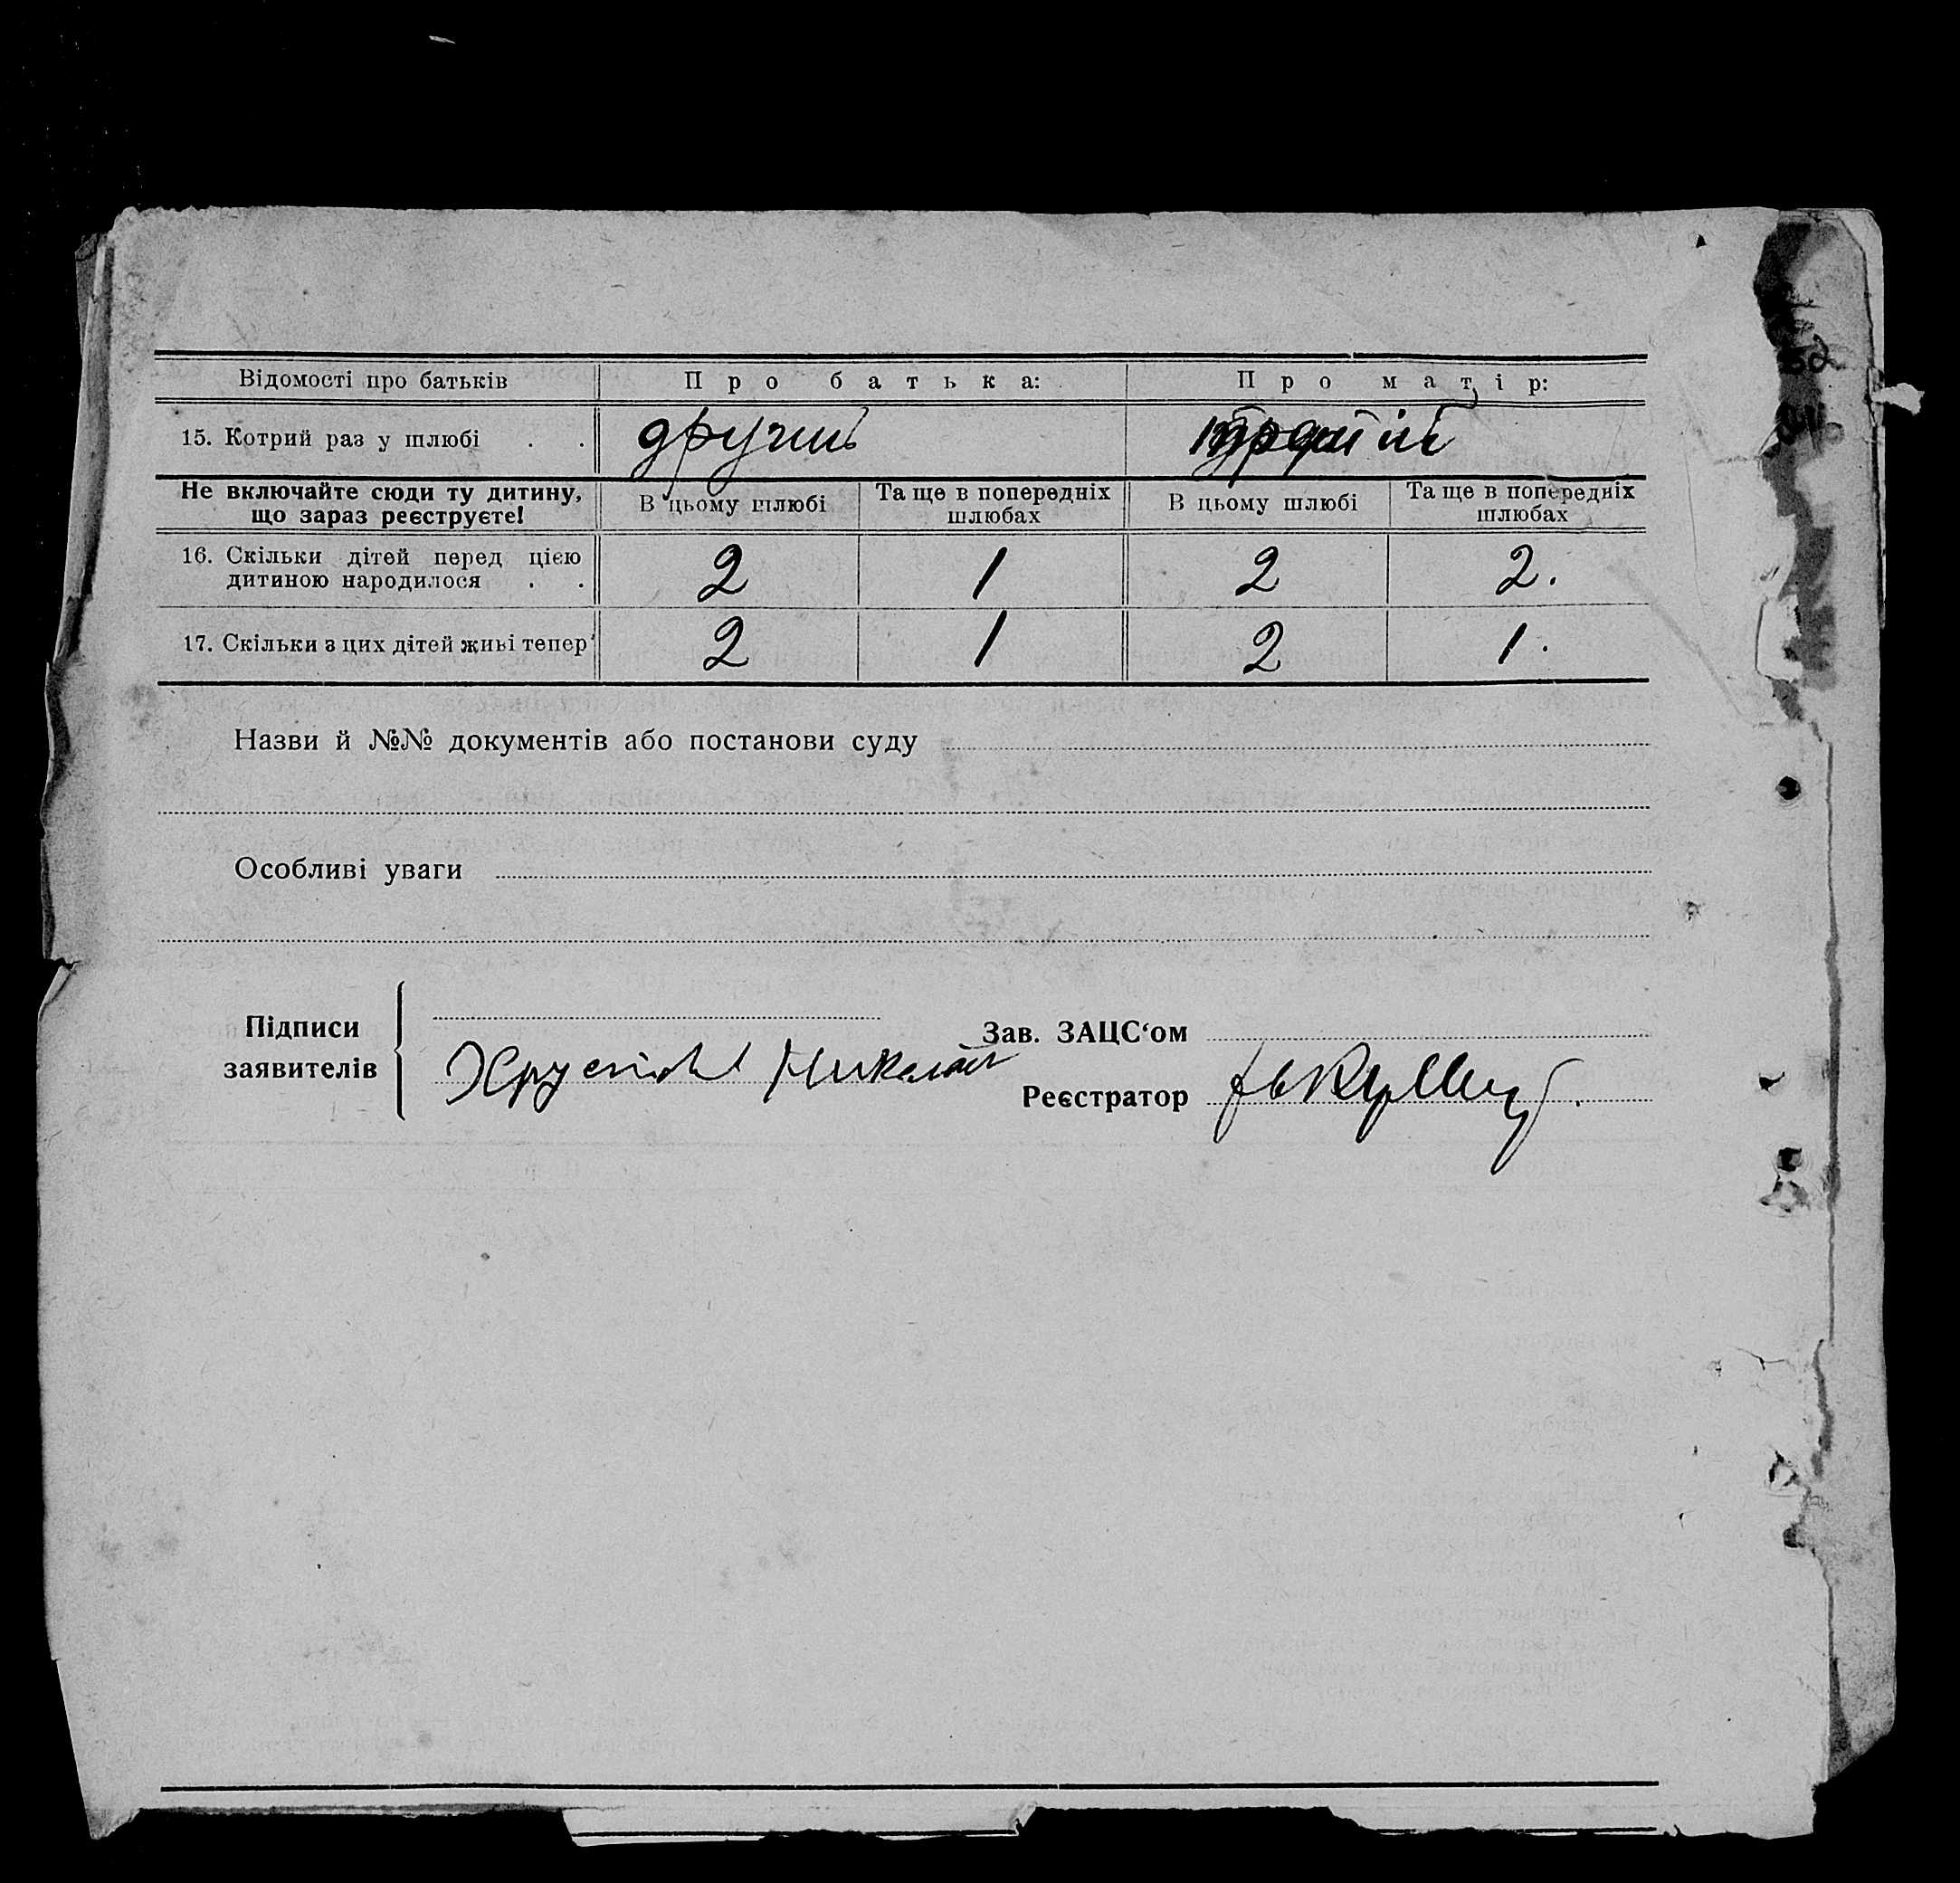 Відомості про батьків Про батька: Про матір:
15. Котрий раз у шлюбі . . другий
Не включайте сюди ту дитину, що зараз реєструєте! В цьому шлюбі Та ще в попередніх шлюбах В цьому шлюбі Та ще в попередніх шлюбах
16. Скільки дітей перед цією
дитиною народилося . . 2 1 2 2.
17. Скільки з цих дітей живі тепер 2 1 2 1.
Назви й №№ документів або постанови суду
Особливі уваги
Підписи
заявителів
Зав. ЗАЦС‘ом
Николай
Реєстратор